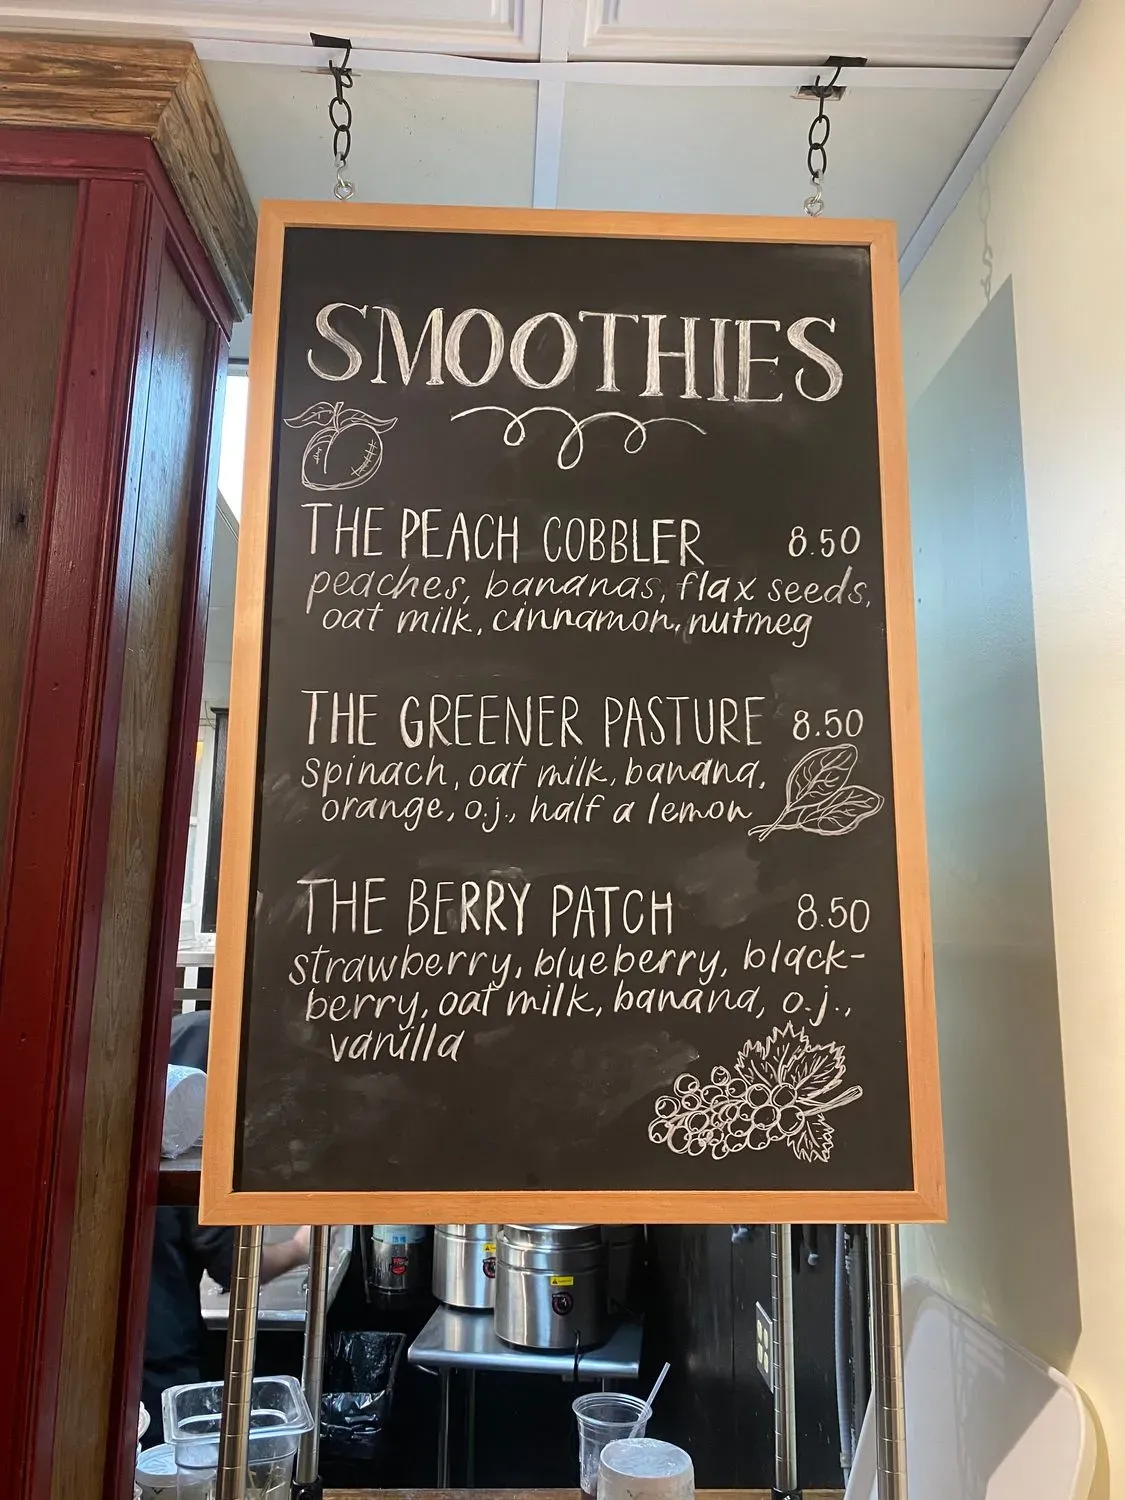 SMOOTHIES
THE PEACH COBBLER 8.50
peaches, bananas, flax seeds,
oat milk, cinnamon, nutmeg
THE GREENER PASTURE 8.50
spinach, oat milk, banana,
orange, o.j., half a lemon
THE BERRY PATCH 8.50
strawberry, blueberry, black-
berry, oat milk, banana, o.j.,
vanilla